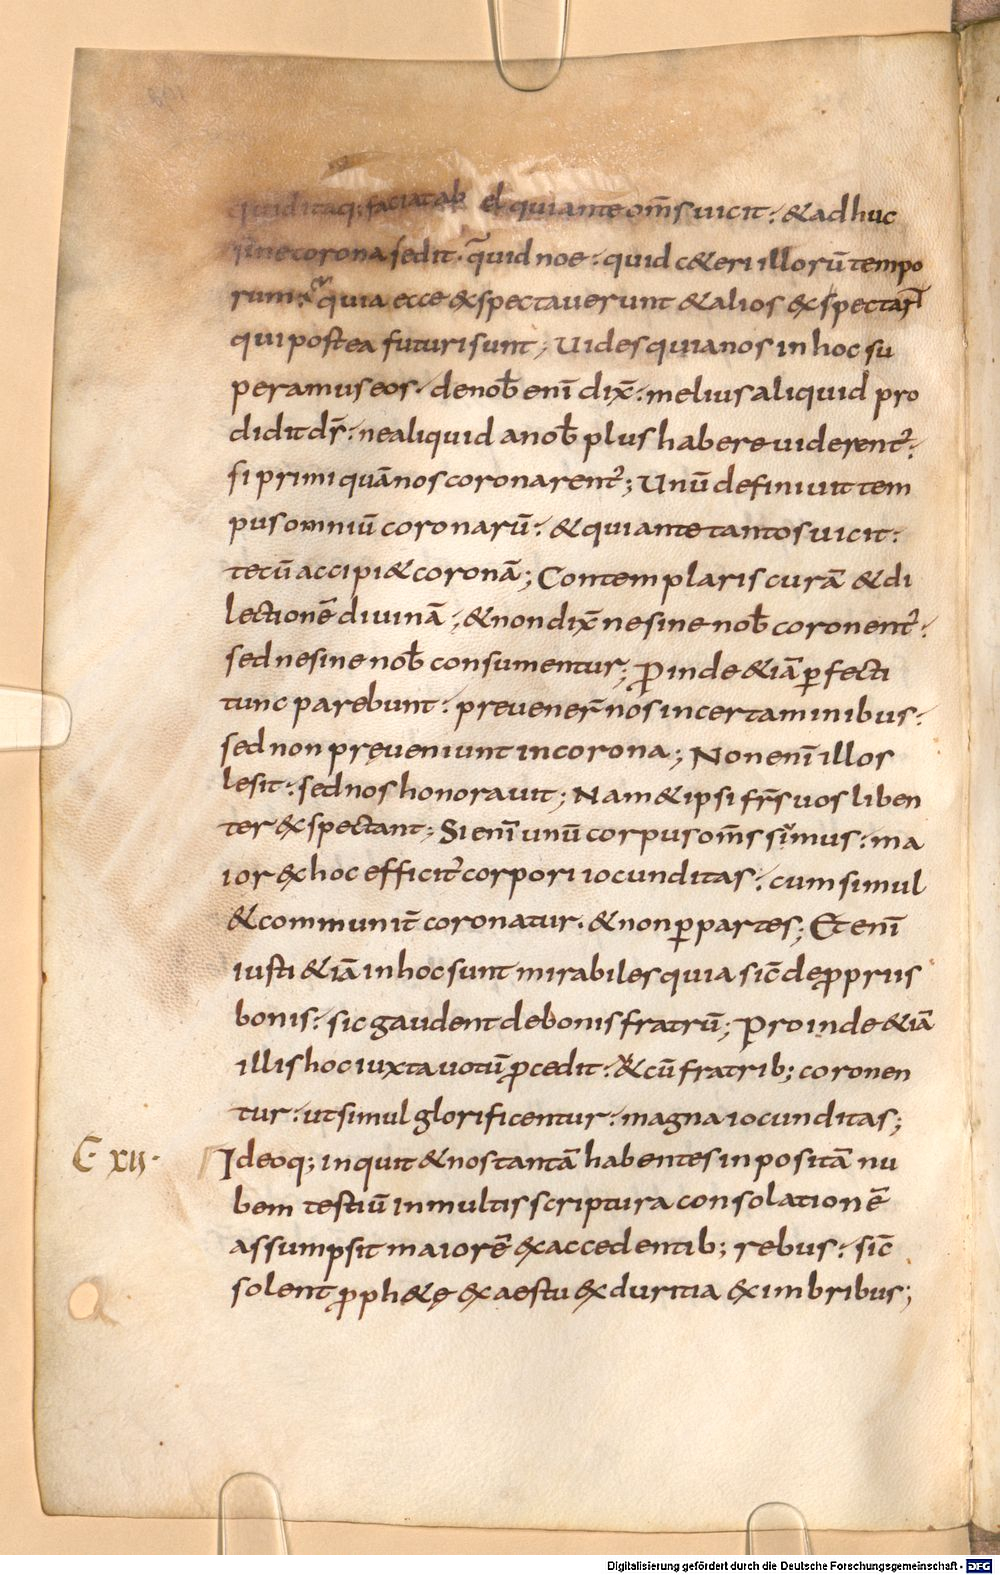 quid itaq; faciat ab el qui ante om̄s uicit · & adhuc
sine corona sedit · quid noe · quid c&eri illorū tempo
rum · quia ecce exspectauerunt & alios exspectan̄t
qui postea futuri sunt; Uides quia nos in hoc su
peramus eos · de nob̄ enī dix̄ · melius aliquid pro
didit ds̄ · ne aliquid a nob̄ plus habere uiderent᷑ ·
si primi quā nos coronarent᷑; Unū definiuit tem
pus omniū coronarū · & qui ante tantos uicit ·
tecū accipi& coronā; Contemplaris curā & di
lectionē diuinā; & non dix̄ ne sine nob̄ coronent᷑ ·
sed ne sine nob̄ consumentur; Proinde & iā ꝑfecti
tunc parebunt · preuener̄ nos in certaminibus ·
sed non pręueniunt in corona; Non enī illos
lesit · sed nos honorauit; Nam & ipsi fr̄s uos liben
ter exspectant; Si enī unū corpus om̄s simus · ma
ior ex hoc efficit᷑ corpori iocunditas · cum simul
& communit̄ coronatur · & non ꝑ partes; Et enī
iusti & iā in hoc sunt mirabiles quia sic̄ de ꝓpriis
bonis · sic gaudent de bonis fratrū; Proinde & iā
illis hoc iuxta uotū ꝓcedit · & cū fratrib; coronen
tur · ut simul glorificentur · magna iocunditas;
C· XII· Ideoq; inquit & nos tantā habentes inpositā nu
bem testiū in multis scriptura consolationē
assumpsit maiorē ex accedentib; rebus · sic̄
solent ꝓph&ę ex aestu ex duritia ex imbribus;
Digitalisierung gefördert durch die Deutsche Forschungsgemeinschaft - DFG